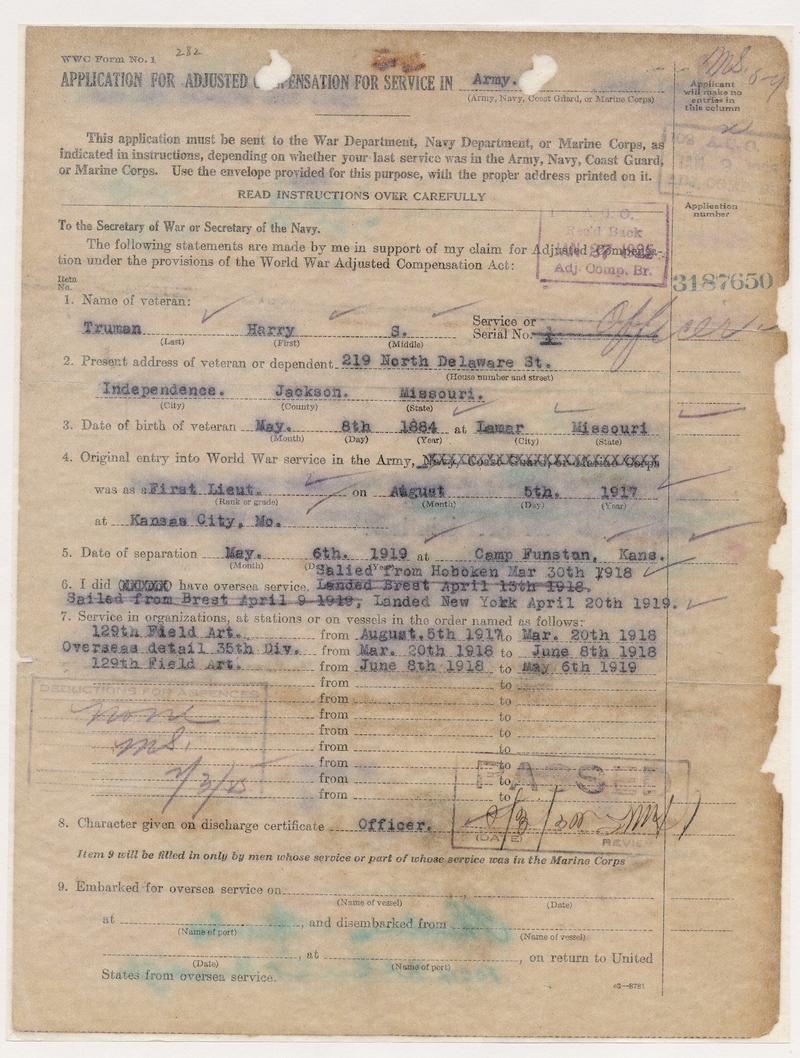 WWC Form No. 1
282
APPLICATION FOR ADJUSTED C PENSATION FOR SERVICE IN Army.
(Army, Navy, Coast Guard, or Marine Corps)
MS.
Applicant
will make no
entries in
this column
This application must be sent to the War Department, Navy Department, or Marine Corps, as
indicated in instructions, depending on whether your last service was in the Army, Navy, Coast Guard,
or Marine Corps. Use the envelope provided for this purpose, with the proper address printed on it.
READ INSTRUCTIONS OVER CAREFULLY
Application
number
A. G. O.
Rec'd Back
1925
Adj. Comp. Br.
To the Secretary of War or Secretary of the Navy.
The following statements are made by me in support of my claim for Adjusted Compensa-
tion under the provisions of the World War Adjusted Compensation Act:
3187650
Item
No.
1. Name of veteran:
Truman Harry S. Service or
Serial No. Officer
(Last) (First) (Middle)
2. Present address of veteran or dependent 219 North Delaware St.
(House number and street)
Independence. Jackson. Missouri.
(City) (County) (State)
3. Date of birth of veteran May. 8th 1884 at Lamar Missouri
(Month) (Day) (Year) (City) (State)
4. Original entry into World War service in the Army, Navy, Coast Guard, or Marine Corps
was as a First Lieut. on August 5th. 1917
(Rank or grade) (Month) (Day) (Year)
at Kansas City, Mo.
5. Date of separation May. 6th. 1919 at Camp Funston, Kans.
(Month) (Day) (Year)
Salied from Hoboken Mar 30th 1918
6. I did have oversea service. Landed Brest April 13th 1918.
Sailed from Brest April 9 1919, Landed New York April 20th 1919.
7. Service in organizations, at stations or on vessels in the order named as follows:
129th Field Art. from August.5th 1917 to Mar. 20th 1918
Overseas detail 35th Div. from Mar. 20th 1918 to June 8th 1918
129th Field Art. from June 8th 1918 to May 6th 1919
from to
from to
from to
from to
from to
from to
from to
from to
DEDUCTIONS FOR ABSENCES
none
MS.
2/3/25
8. Character given on discharge certificate Officer.
(DATE)
Item 9 will be filled in only by men whose service or part of whose service was in the Marine Corps
9. Embarked for oversea service on
(Name of vessel) (Date)
at , and disembarked from
(Name of port) (Name of vessel)
, at , on return to United
(Date) (Name of port)
States from oversea service.
e3—8781